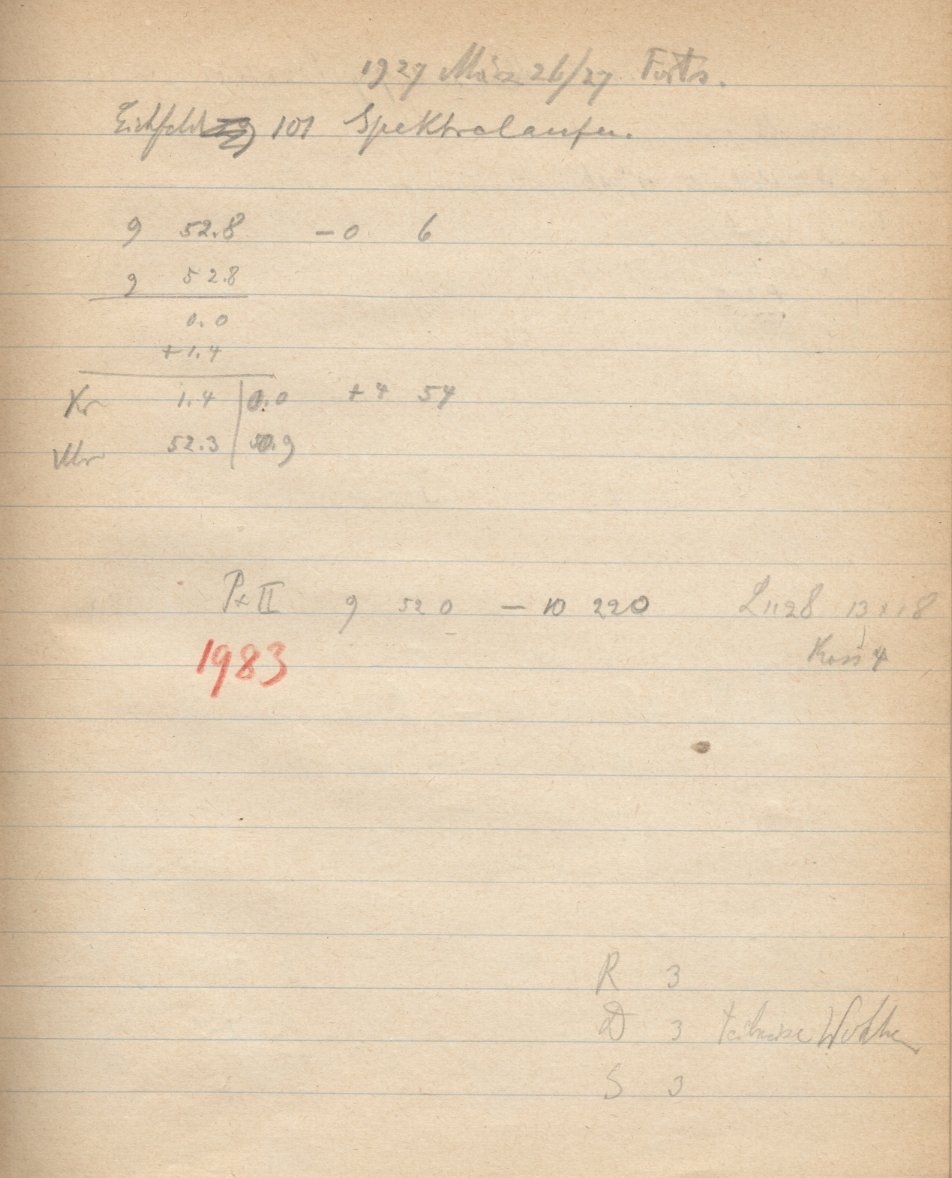 1927 März 26/27 Forts.
Eichfeld 101 Spektralaufn.
9 52.8 – 0 6
9 52.8
0.0
+ 1.4
Kr 1.4 | 0.0 + 4 54
Uhr 52.3 | 50.9
Px II 9 52 0 – 10 22 0 L 1128 13 x 18
1983 Korn 4
R 3
D 3 teilweise Wolken
S 3